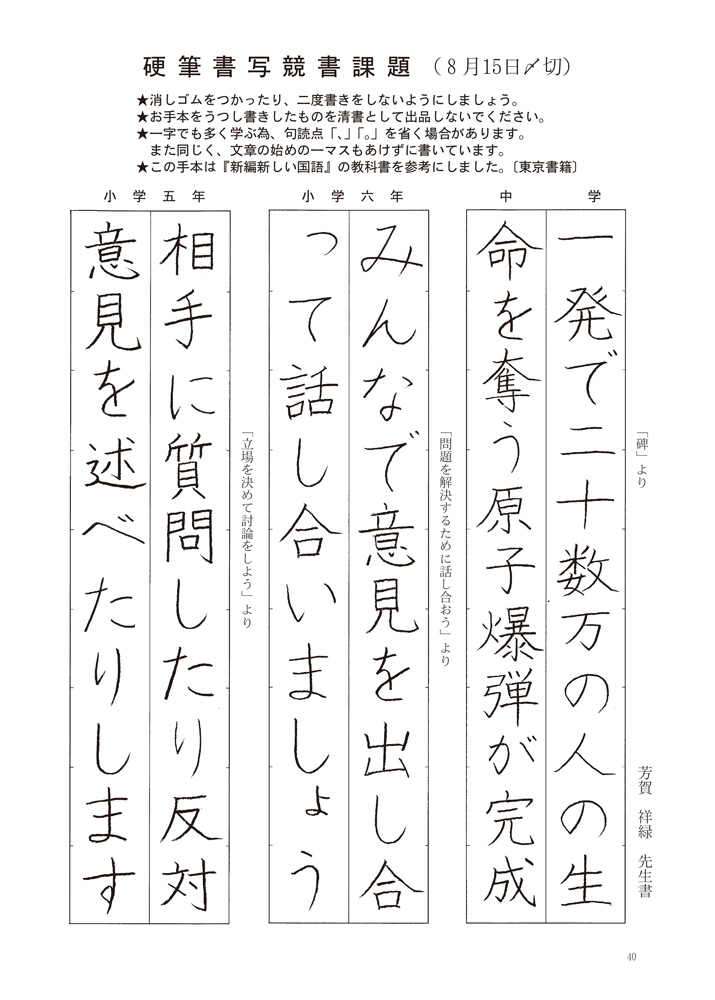 硬筆書写競書課題（８月15日〆切）
★消しゴムをつかったり、二度書きをしないようにしましょう。
★お手本をうつし書きしたものを清書として出品しないでください。
★一字でも多く学ぶ為、句読点「、」「。」を省く場合があります。
また同じく、文章の始めの一マスもあけずに書いています。
★この手本は『新編新しい国語』の教科書を参考にしました。〔東京書籍〕
中学
「碑」より
芳賀 祥緑 先生書
一発で二十数万の人の生
命を奪う原子爆弾が完成
小学六年
「問題を解決するために話し合おう」より
みんなで意見を出し合
って話し合いましょう
小学五年
「立場を決めて討論をしよう」より
相手に質問したり反対
意見を述べたりします
40